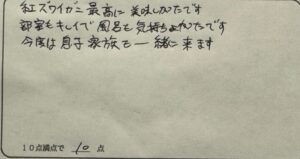 紅ズワイガニ最高に美味しかたです
部屋もキレイで風呂も気持ちよかたです
今度は息子家族も一緒に来ます
10点満点で 10 点